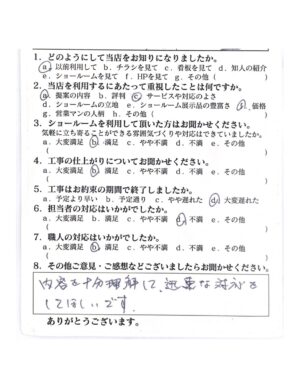 1. どのようにして当店をお知りになりましたか。
a. 以前利用して b. チラシを見て c. 看板を見て d. 知人の紹介
e. ショールームを見て f. HPを見て g. その他（ ）
2. 当店を利用するにあたって重視したことは何ですか。
a. 提案の内容 b. 評判 c. サービスや対応のよさ
d. ショールームの立地 e. ショールーム展示品の豊富さ f. 価格
g. 営業マンの人柄 h. その他（ ）
3. ショールームを利用して頂いた方はお聞かせください。
気軽に立ち寄ることができる雰囲気づくりや対応はできていましたか。
a. 大変満足 b. 満足 c. やや不満 d. 不満 e. その他（ ）
4. 工事の仕上がりについてお聞かせください。
a. 大変満足 b. 満足 c. やや不満 d. 不満 e. その他（ ）
5. 工事はお約束の期間で終了しましたか。
a. 予定より早い b. 予定通り c. やや遅れた d. 大変遅れた
6. 担当者の対応はいかがでしたか。
a. 大変満足 b. 満足 c. やや不満 d. 不満 e. その他（ ）
7. 職人の対応はいかがでしたか。
a. 大変満足 b. 満足 c. やや不満 d. 不満 e. その他（ ）
8. その他ご意見・ご感想などございましたらお聞かせください。
内容を十分理解して、迅速な対応を
してほしいです。
ありがとうございます。